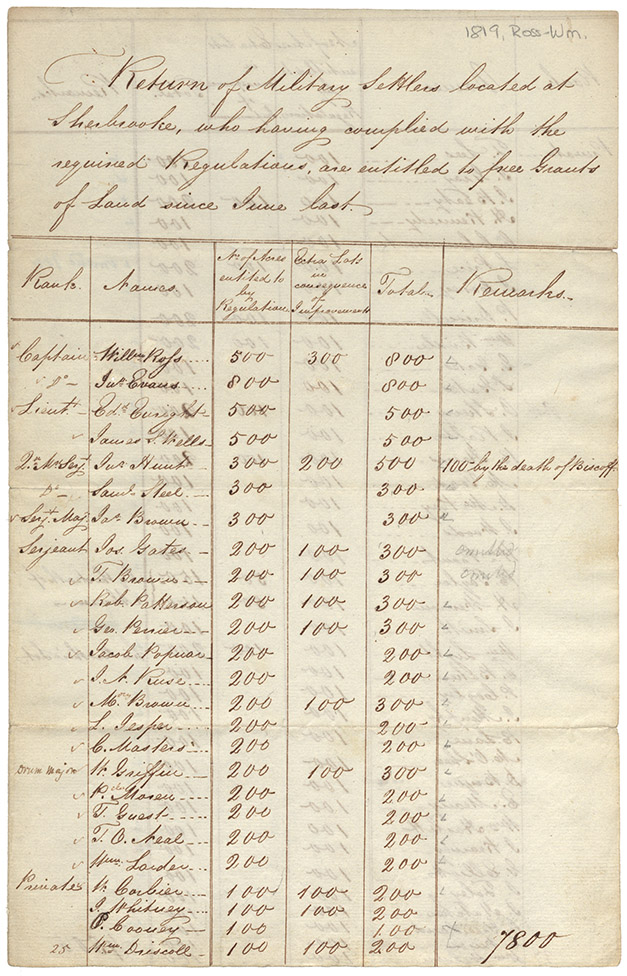 1819, Ross-Wm.
Return of Military Settlers located at
Sherbrooke, who having complied with the
required Regulations, are entitled to free Grants
of Land since June last.
Rank Names No. of Acres entitled to by Regulation Extra Lots in consequence of Improvement Total Remarks
Captain Willm Ross 500 300 800 "
Do Jno. Evans 800 800
Lieut. Edd. Enright 500 500
James S. Wells 500 500
Qr. Mr. Serjt. Jno. Hunt 300 200 500 100 by the death of Biscoff
Do Saml. Steel 300 300
Serjt. Maj. Jas. Brown 300 300 "
Serjeant Jos. Gates 200 100 300 omitted
T. Brown 200 100 300 omitted
Rob. Patterson 200 100 300 "
Geo. Perrier 200 100 300 "
Jacob Popuar 200 200 "
J. A. Ruse 200 200 "
Brown 200 100 300 "
L. Jesper 200 200 "
C. Masters 200 200 "
Drum major W. Griffin 200 100 300 "
Moren 200 200 "
T. Guest 200 200 "
T. O. Neal 200 200 "
Wm. Larder 200 200 "
Privates W. Corbier 100 100 200
J. Whitney 100 100 200
P. Cooney 100 100 x
25 Wm. Driscoll 100 100 200 7800